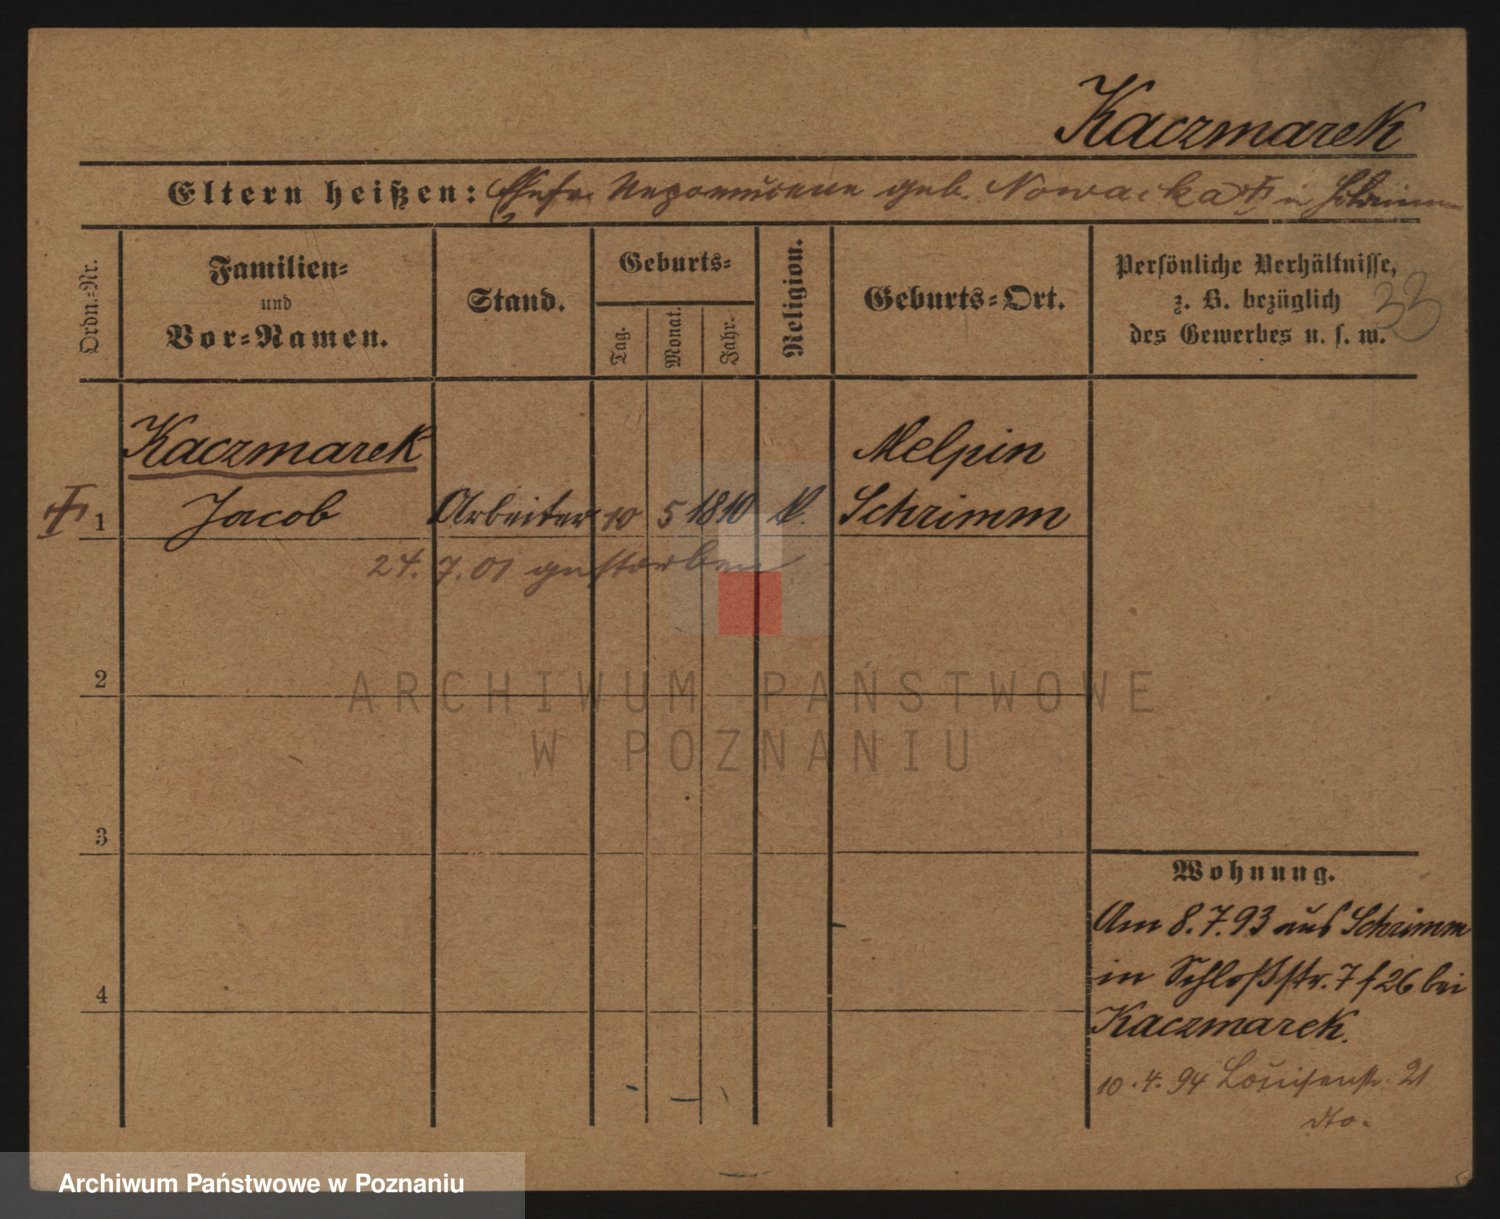 Kaczmarek
Eltern heißen: Ehefr. Nepomucena geb. Nowacka † in Schrimm
Ordn.-Nr.
Familien-
und
Vor-Namen.
Stand.
Geburts-
Tag.
Monat.
Jahr.
Religion.
Geburts-Ort.
Persönliche Verhältnisse,
z. B. bezüglich
des Gewerbes u. s. w.
33
Kaczmarek
Melpin
† 1 Jacob Arbeiter 10 5 1810 k. Schrimm
24.7.01 gestorben
2
3
4
Wohnung.
Am 8.7.93 aus Schrimm
in Schloßstr. 7 f 26 bei
Kaczmarek.
10.4.94 Louisenstr. 21
dto.
ARCHIWUM PAŃSTWOWE
W POZNANIU
Archiwum Państwowe w Poznaniu